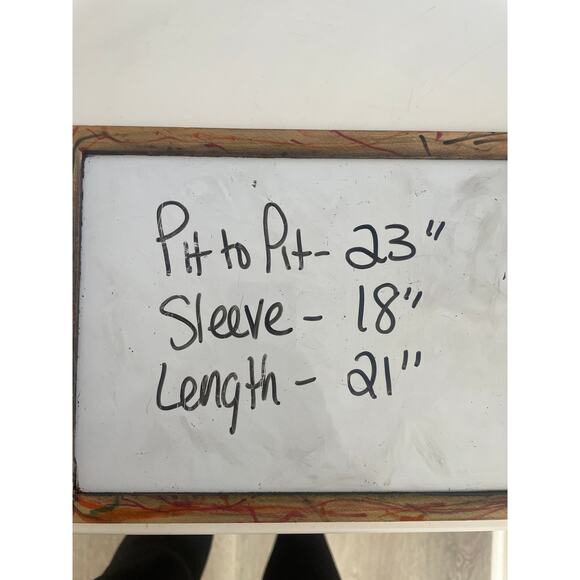 Pit to Pit- 23"
Sleeve - 18"
Length - 21"